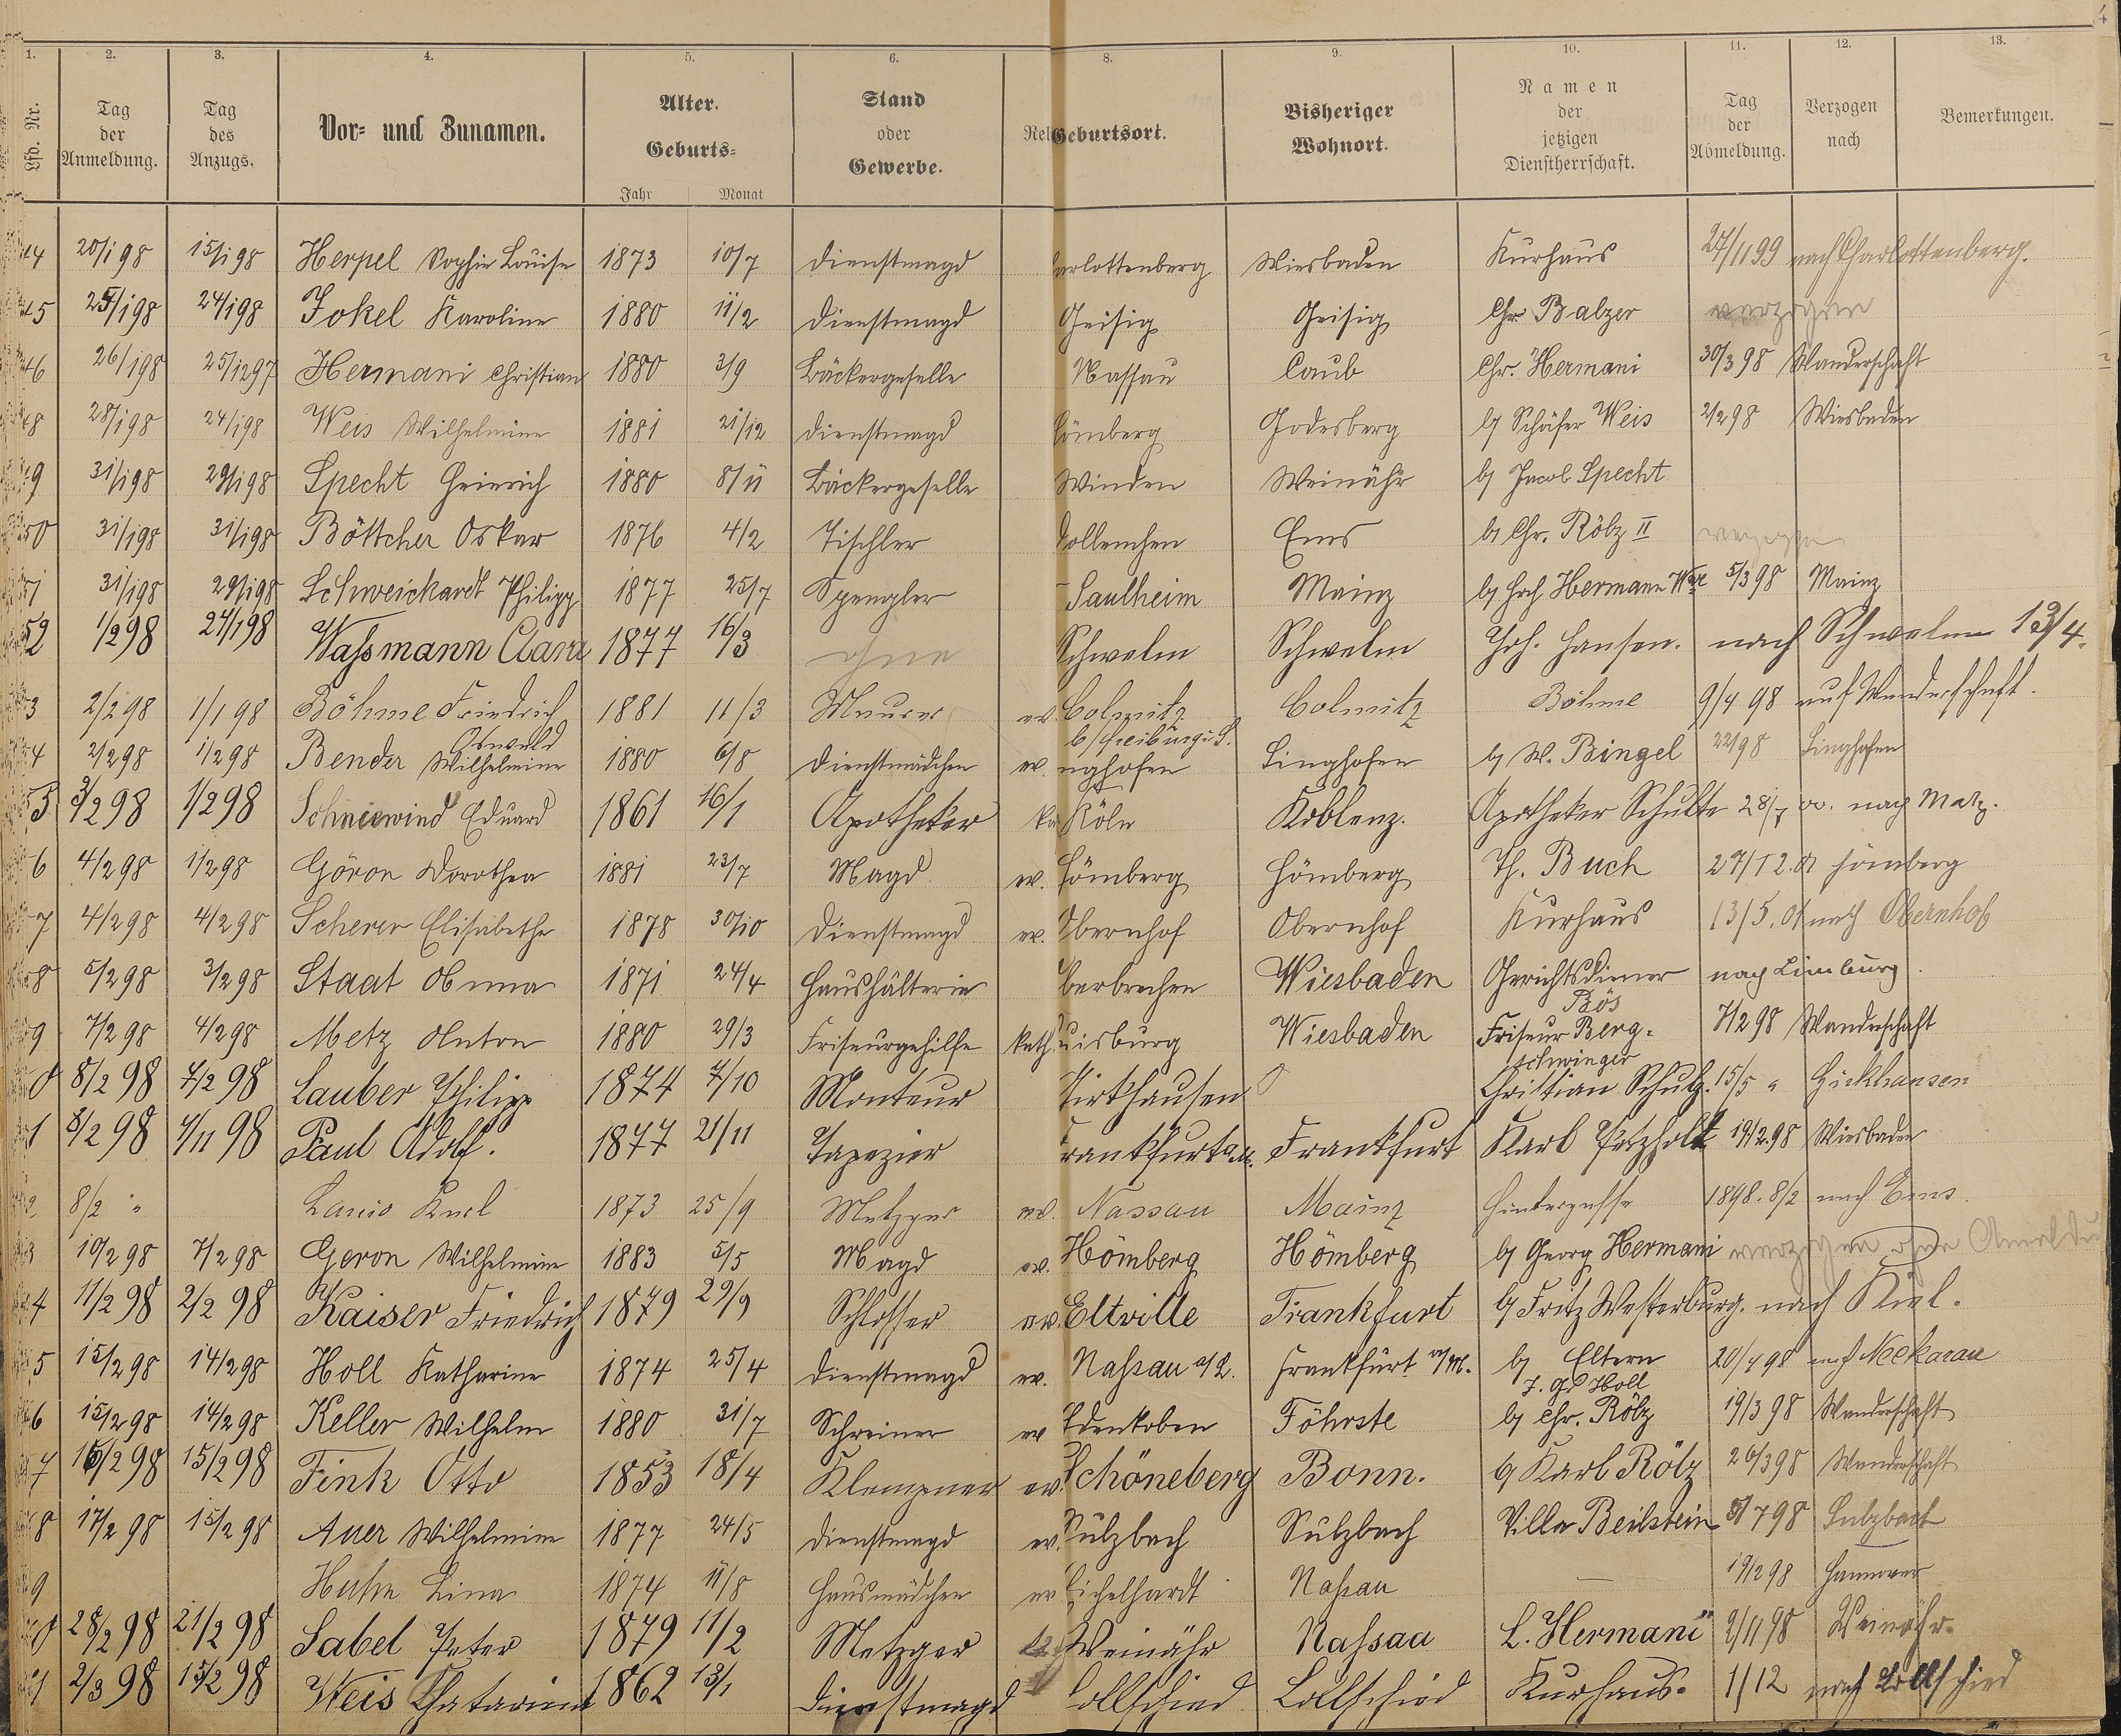 4
1. 2. 3. 4. 5. 6. 8. 9. 10. 11. 12. 13.
Lfd. Nr. Tag der Anmeldung. Tag des Anzugs. Vor- und Zunamen. Alter. Geburts- Jahr Monat Stand oder Gewerbe. Rel Geburtsort. Bisheriger Wohnort. Namen der jetzigen Dienstherrschaft. Tag der Abmeldung. Verzogen nach Bemerkungen.
44 20/1 98 15/1 98 Herpel Sophie Louise 1873 10/7 Dienstmagd arlottenberg Wiesbaden Kurhaus 27/11 99 nach Charlottenberg.
45 25/1 98 24/1 98 Jokel Karoline 1880 11/2 Dienstmagd Geisig Geisig Chr Balzer verzogen
46 26/1 98 25/12 97 Hermani Christian 1880 3/9 Bäckergeselle Nassau Caub Chr. Hermani 30/3 98 Wanderschaft
48 28/1 98 24/1 98 Weis Wilhelmine 1881 21/12 Dienstmagd Hömberg Godesberg b/ Schäfer Weis 2/2 98 Wiesbaden
9 31/1 98 29/1 98 Specht Heinrich 1880 8/11 Bäckergeselle Winden Weinähr b/ Jacob Specht
50 31/1 98 31/1 98 Böttcher Oskar 1876 4/2 Tischler Dollenchen Ems b/ Chr. Rölz II verzogen
51 31/1 98 29/1 98 Schweickardt Philipp 1877 25/7 Spengler Saulheim Mainz b/ Hrch Hermann Wwe 5/3 98 Mainz
52 1/2 98 27/1 98 Wassmann Clara 1877 16/3 ohne Schwelm Schwelm Joh. Hansen. nach Schwelm 13/4.
3 2/2 98 1/1 98 Böhme Friedrich Oswald 1881 11/3 Maurer ev. Colmnitz b/ Freiburg i. S. Colmitz Böhme 9/4 98 auf Wanderschaft.
4 2/2 98 1/2 98 Bender Wilhelmine 1880 6/8 Dienstmädchen ev. nghofen Singhofen b/ W. Bingel 22/98 Singhofen
55 3/2 98 1/2 98 Schniewind Eduard 1861 16/1 Apotheker ka Köln Koblenz. Apotheker Schulte 28/7 00. nach Metz.
6 4/2 98 1/2 98 Göron Dorothea 1881 23/7 Magd ev. Hömberg Hömberg Th. Buch 27/12. 01 Hömberg
7 4/2 98 4/2 98 Scherer Elisabethe 1878 30/10 Dienstmagd ev. Obernhof Obernhof Kurhaus 13/5. 01 nach Obernhof
8 5/2 98 3/2 98 Staat Anna 1871 24/4 Haushälterin berbrechen Wiesbaden Gerichtsdiener Bös nach Limburg.
9 7/2 98 4/2 98 Metz Anton 1880 29/3 Friseurgehilfe kath. uisburg Wiesbaden Friseur Berg-schwinger 7/2 98 Wanderschaft
0 8/2 98 7/2 98 Lauber Philipp 1874 7/10 Monteur Christian Schulz. 15/5 "
1 8/2 98 7/11 98 Paul Adolf. 1877 21/11 Tapezier Frankfurt a M. Frankfurt Karl Petzholdt 19/2.98 Wiesbaden
2 8/2 " Lanio Karl 1873 25/9 Metzger ev. Nassau Mainz Hintergasse 1898. 8/2 nach Ems.
3 10/2 98 7/2 98 Geron Wilhelmine 1883 5/5 Magd ev. Hömberg Hömberg b/ Georg Hermani verzogen ohne Anmeldu
4 11/2 98 2/2 98 Kaiser Friedrich 1879 29/9 Schlosser ev. Eltville Frankfurt b/ Fritz Westerburg. nach Kiel.
5 15/2 98 14/2 98 Holl Katharine 1874 25/4 Dienstmagd ev. Nassau a/L. Frankfurt a/M. b/ Eltern J. Gd Holl 20/4 98 nach Neckarau
6 15/2 98 14/2 98 Keller Wilhelm 1880 31/7 Schreiner ev Edenkoben Föhrste b/ Chr. Rölz 19/3 98 Wanderschaft
7 16/2 98 15/2 98 Fink Otto 1853 18/4 Klempner ev. Schöneberg Bonn. b/ Karl Rölz 26/3 98 Wanderschaft
8 17/2 98 15/2 98 Auer Wilhelmine 1877 24/5 Dienstmagd ev. Sulzbach Sulzbach Villa Beilstein 5/7 98 Sulzbach
9 Lina 1874 11/8 Hausmädchen ev Eichelhardt Nassau — 19/2 98 Hannover
0 28/2 98 21/2 98 Sabel Peter 1879 11/2 Metzger Weinähr Nassau L. Hermani 2/11 98 Weinähr.
1 2/3 98 15/2 98 Weis Chatarina 1862 13/1 Dienstmagd Lollschied Lollschied Kurhaus. 1/12 nach Lollschied